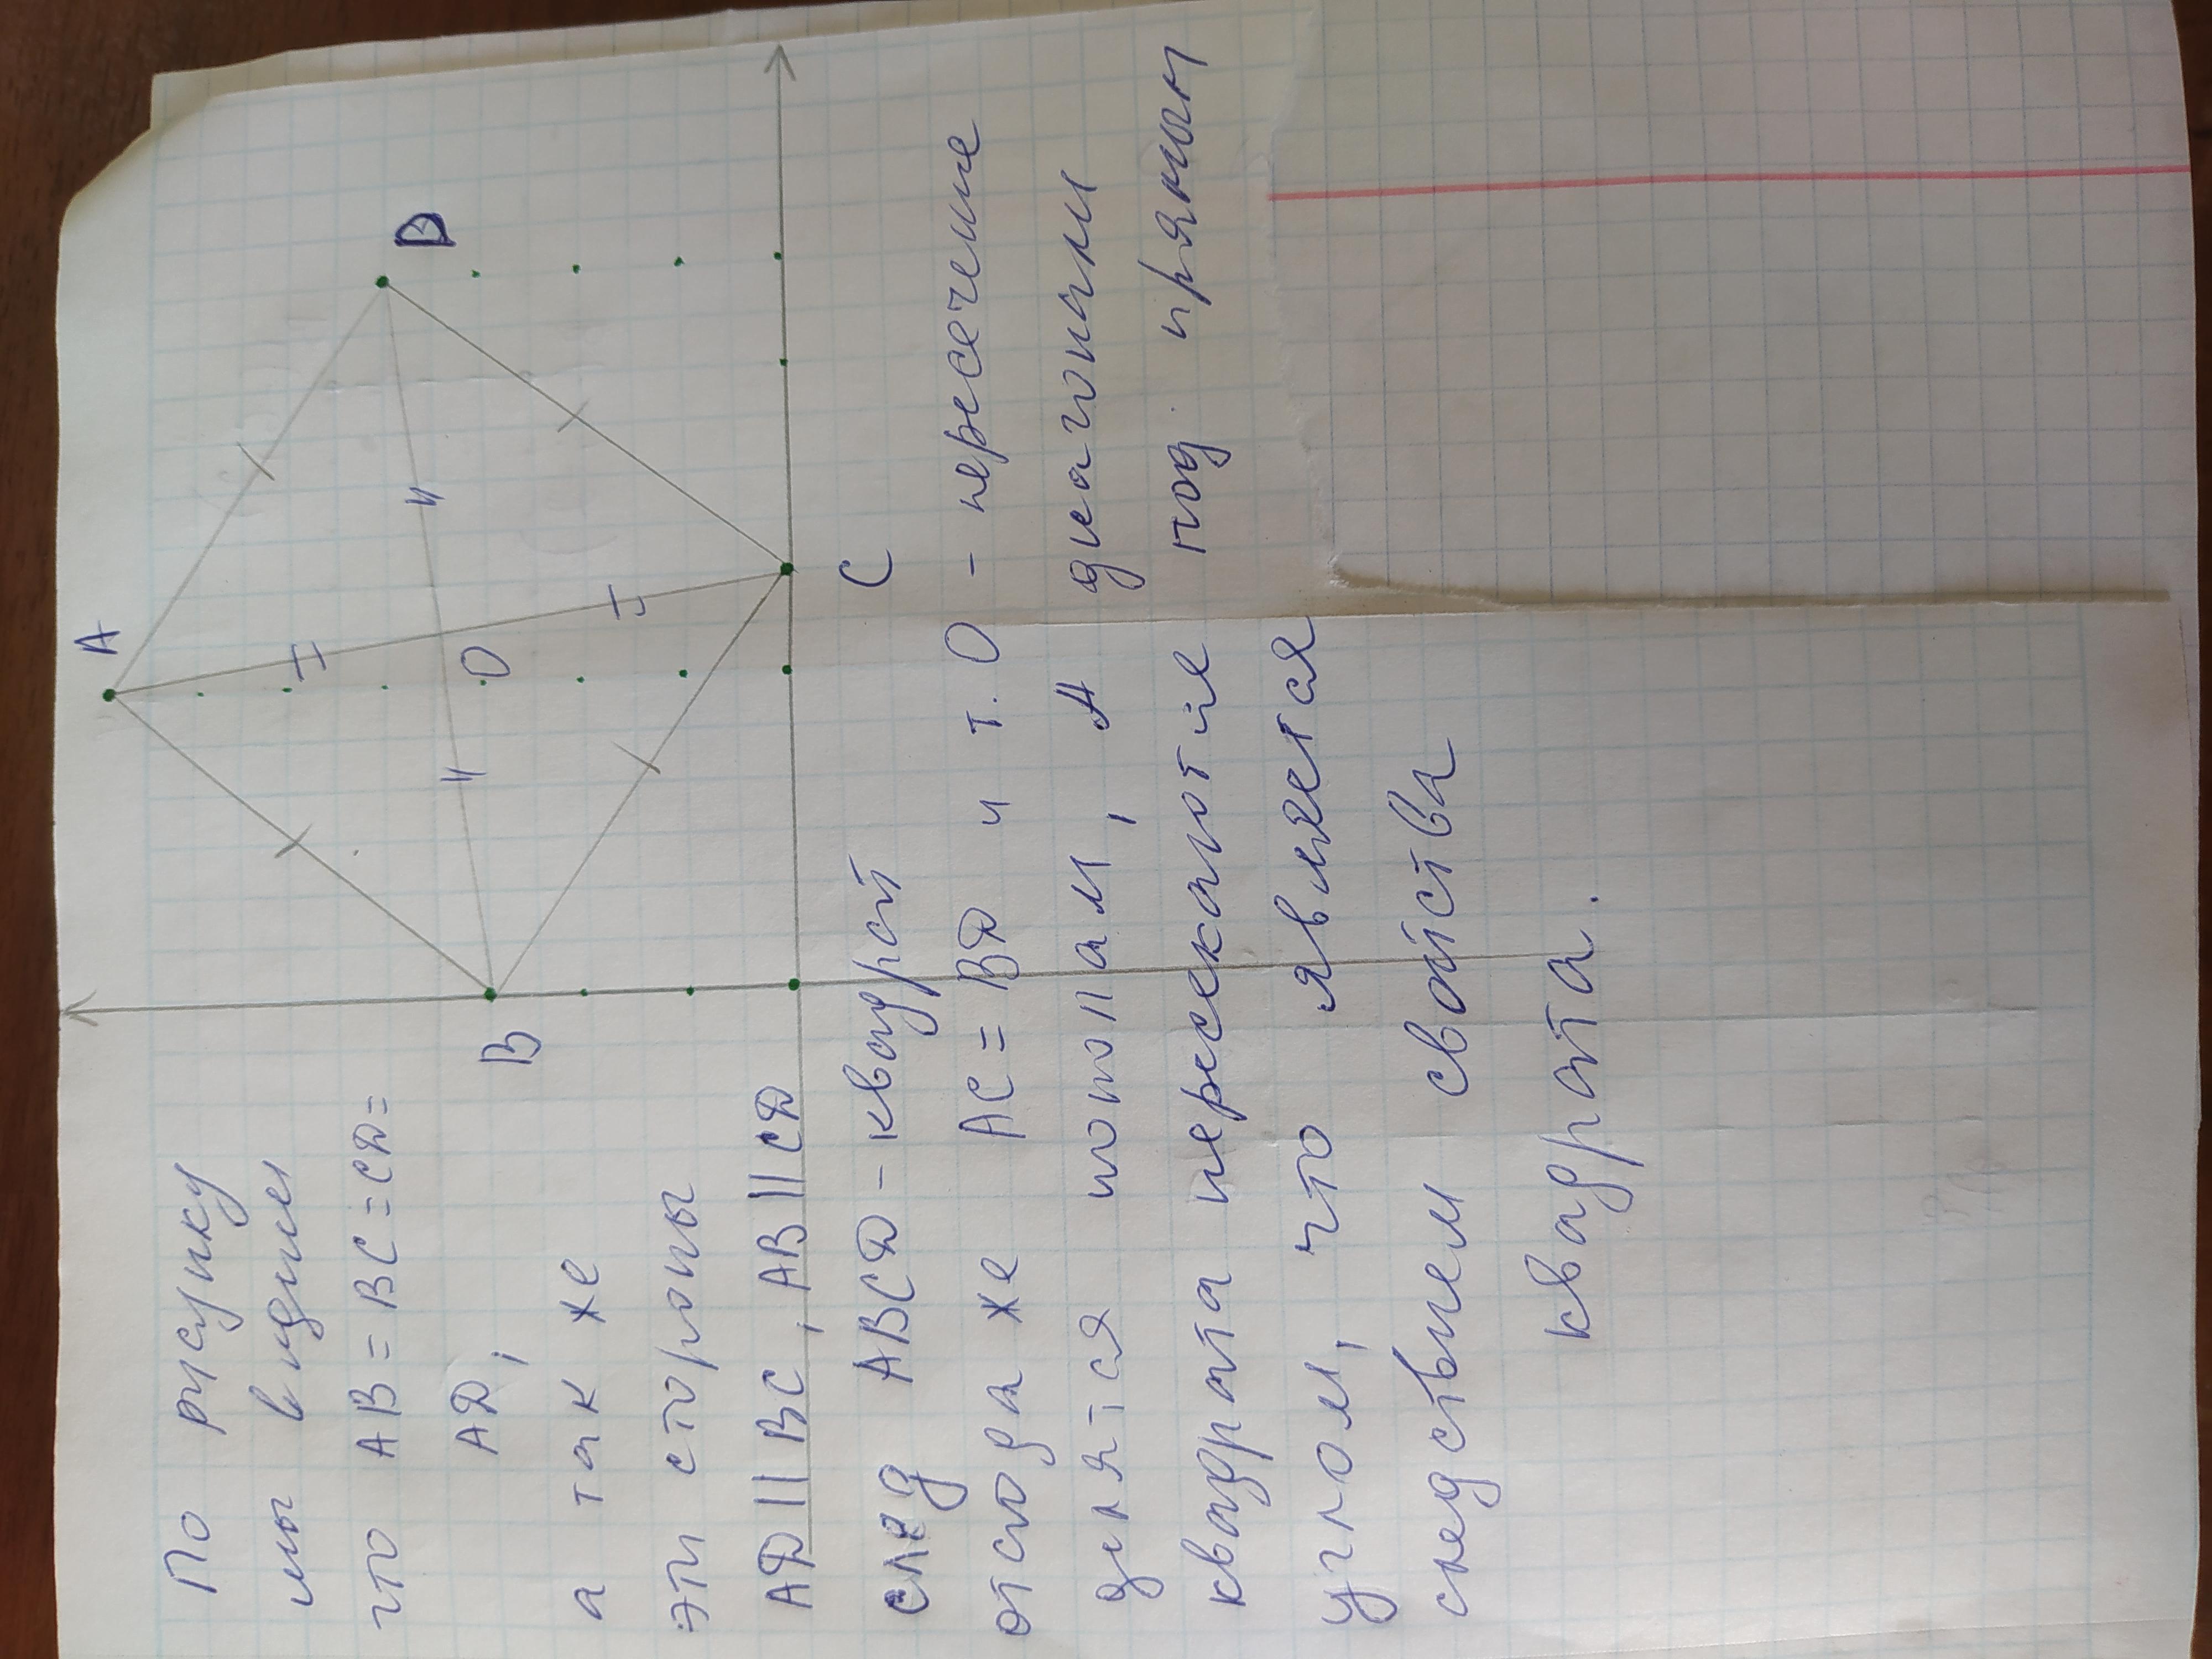 A
D
B
O
C
По рисунку
мы видим
что AB = BC = CD =
AD,
а так же
эти стороны
AD || BC, AB || CD
след ABCD - квадрат
отсюда же AC = BD и т. O - пересечение
делятся пополам, А диагонали
квадрата пересекаются под прямым
углом, что является
следствием свойства
квадрата.